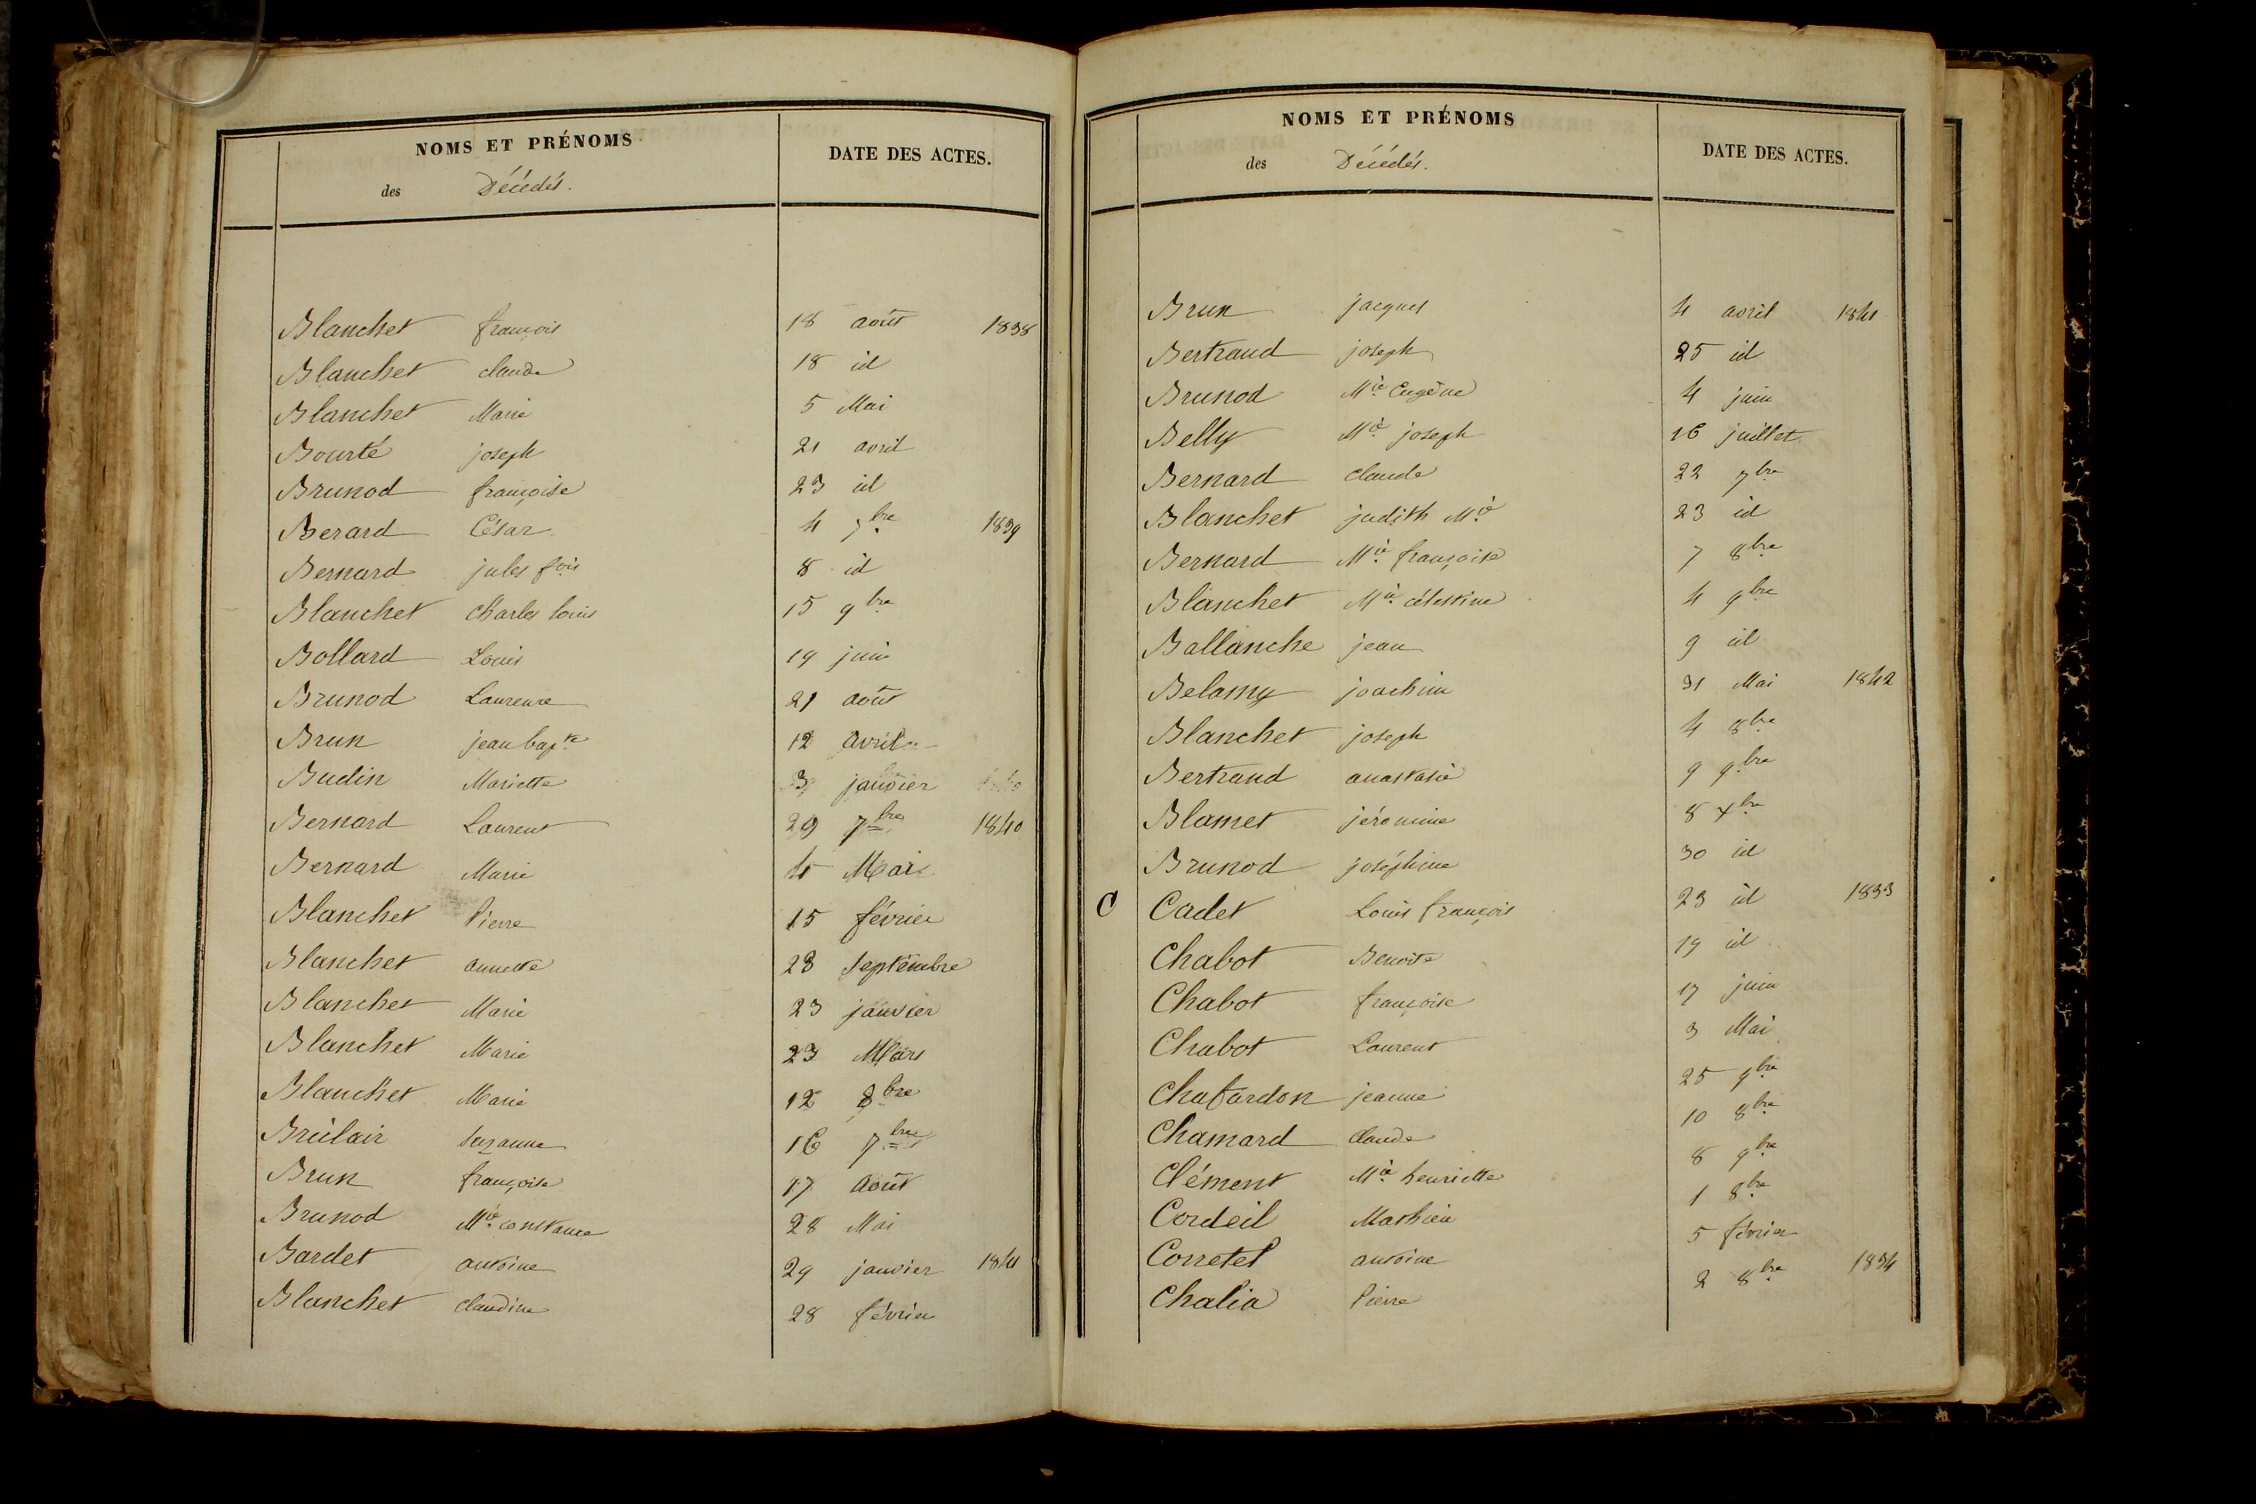 NOMS ET PRÉNOMS
DATE DES ACTES.
des Décédés.
Blanchet françois 18 août 1838
Blanchet claude 18 id
Blanchet Marie 5 Mai
Bourté joseph 21 avril
Brunod françoise 23 id
Berard César 4 7bre 1839
Bernard jules fois 8 id
Blanchet Charles louis 15 9bre
Bollard Louis 19 juin
Brunod Laurence 21 août
Brun jean bapte 12 avril
Budin Mariette 3 janvier
Bernard Laurent 29 7bre 1840
Bernard Marie 4 Mai
Blanchet Pierre 15 février
Blanchet annette 28 septembre
Blanchet Marie 23 janvier
Blanchet Marie 23 Mars
Blanchet Marie 12 8bre
Brûlair suzanne 16 7bre
Brun françoise 17 Août
Brunod Mie constance 28 Mai
Bardet antoine 29 janvier 1841
Blanchet claudine 28 février
NOMS ET PRÉNOMS
DATE DES ACTES.
des Décédés.
Brun jacques 4 avril 1841
Bertraud joseph 25 id
Brunod Mie Eugène 4 juin
Belly Mie joseph 16 juillet
Bernard claude 22 7bre
Blanchet judith Mie 23 id
Bernard Mie françoise 7 8bre
Blanchet Mie célestine 4 9bre
Ballanche jean 9 id
Belamy joachim 31 Mai 1842
Blanchet joseph 4 8bre
Bertraud anastasie 9 9bre
Blamet jéromine 8 Xbre
Brunod joséphine 30 id
C Cadet Louis françois 23 id 1833
Chabot Benoite 19 id
Chabot françoise 17 juin
Chabot Laurent 3 Mai
Chafardon jeanne 25 9bre
Chamard claude 10 8bre
Clément Mie henriette 8 9bre
Cordeil Mathieu 1 8bre
Corretel antoine 5 février
Chalia Pierre 2 8bre 1834